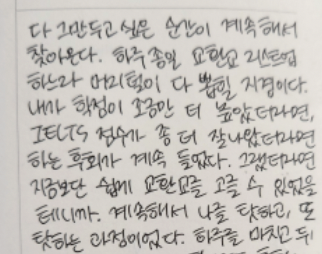 다 그만두고 싶은 순간이 계속해서
찾아온다. 하루종일 교환교 리스트업
하느라 머리털이 다 뽑힐 지경이다.
내가 학점이 조금만 더 높았더라면,
IELTS 점수가 좀 더 잘나왔더라면
하는 후회가 계속 들었다. 그랬더라면
지금보단 쉽게 교환교를 고를 수 있었을
테니까. 계속해서 나를 탓하고, 또
탓하는 과정이었다. 하루를 마치고 뒤